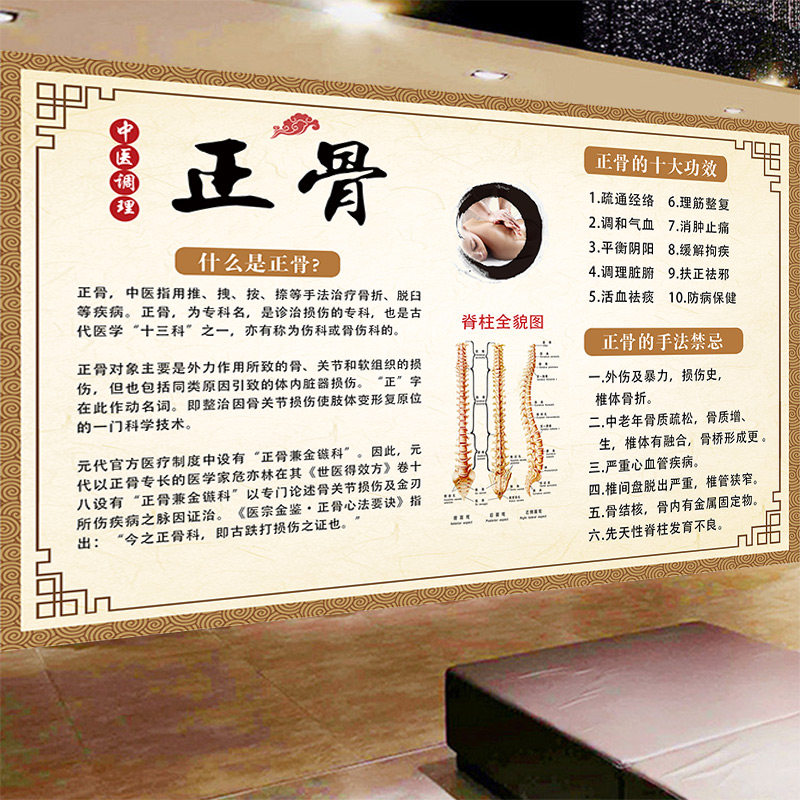 中医调理
正骨
什么是正骨?
正骨，中医指用推、拽、按、捺等手法治疗骨折、脱臼
等疾病。正骨，为专科名，是诊治损伤的专科，也是古
代医学“十三科”之一，亦有称为伤科或骨伤科的。
正骨对象主要是外力作用所致的骨、关节和软组织的损
伤，但也包括同类原因引致的体内脏器损伤。“正”字
在此作动名词。即整治因骨关节损伤使肢体变形复原位
的一门科学技术。
元代官方医疗制度中设有“正骨兼金镞科”。因此，元
代以正骨专长的医学家危亦林在其《世医得效方》卷十
八设有“正骨兼金镞科”以专门论述骨关节损伤及金刃
所伤疾病之脉因证治。《医宗金鉴·正骨心法要诀》指
出：“今之正骨科，即古跌打损伤之证也。”
脊柱全貌图
正骨的十大功效
1.疏通经络 6.理筋整复
2.调和气血 7.消肿止痛
3.平衡阴阳 8.缓解拘疾
4.调理脏腑 9.扶正祛邪
5.活血祛痰 10.防病保健
正骨的手法禁忌
一.外伤及暴力，损伤史，
椎体骨折。
二.中老年骨质疏松，骨质增、
生，椎体有融合，骨桥形成更。
三.严重心血管疾病。
四.椎间盘脱出严重，椎管狭窄。
五.骨结核，骨内有金属固定物。
六.先天性脊柱发育不良。